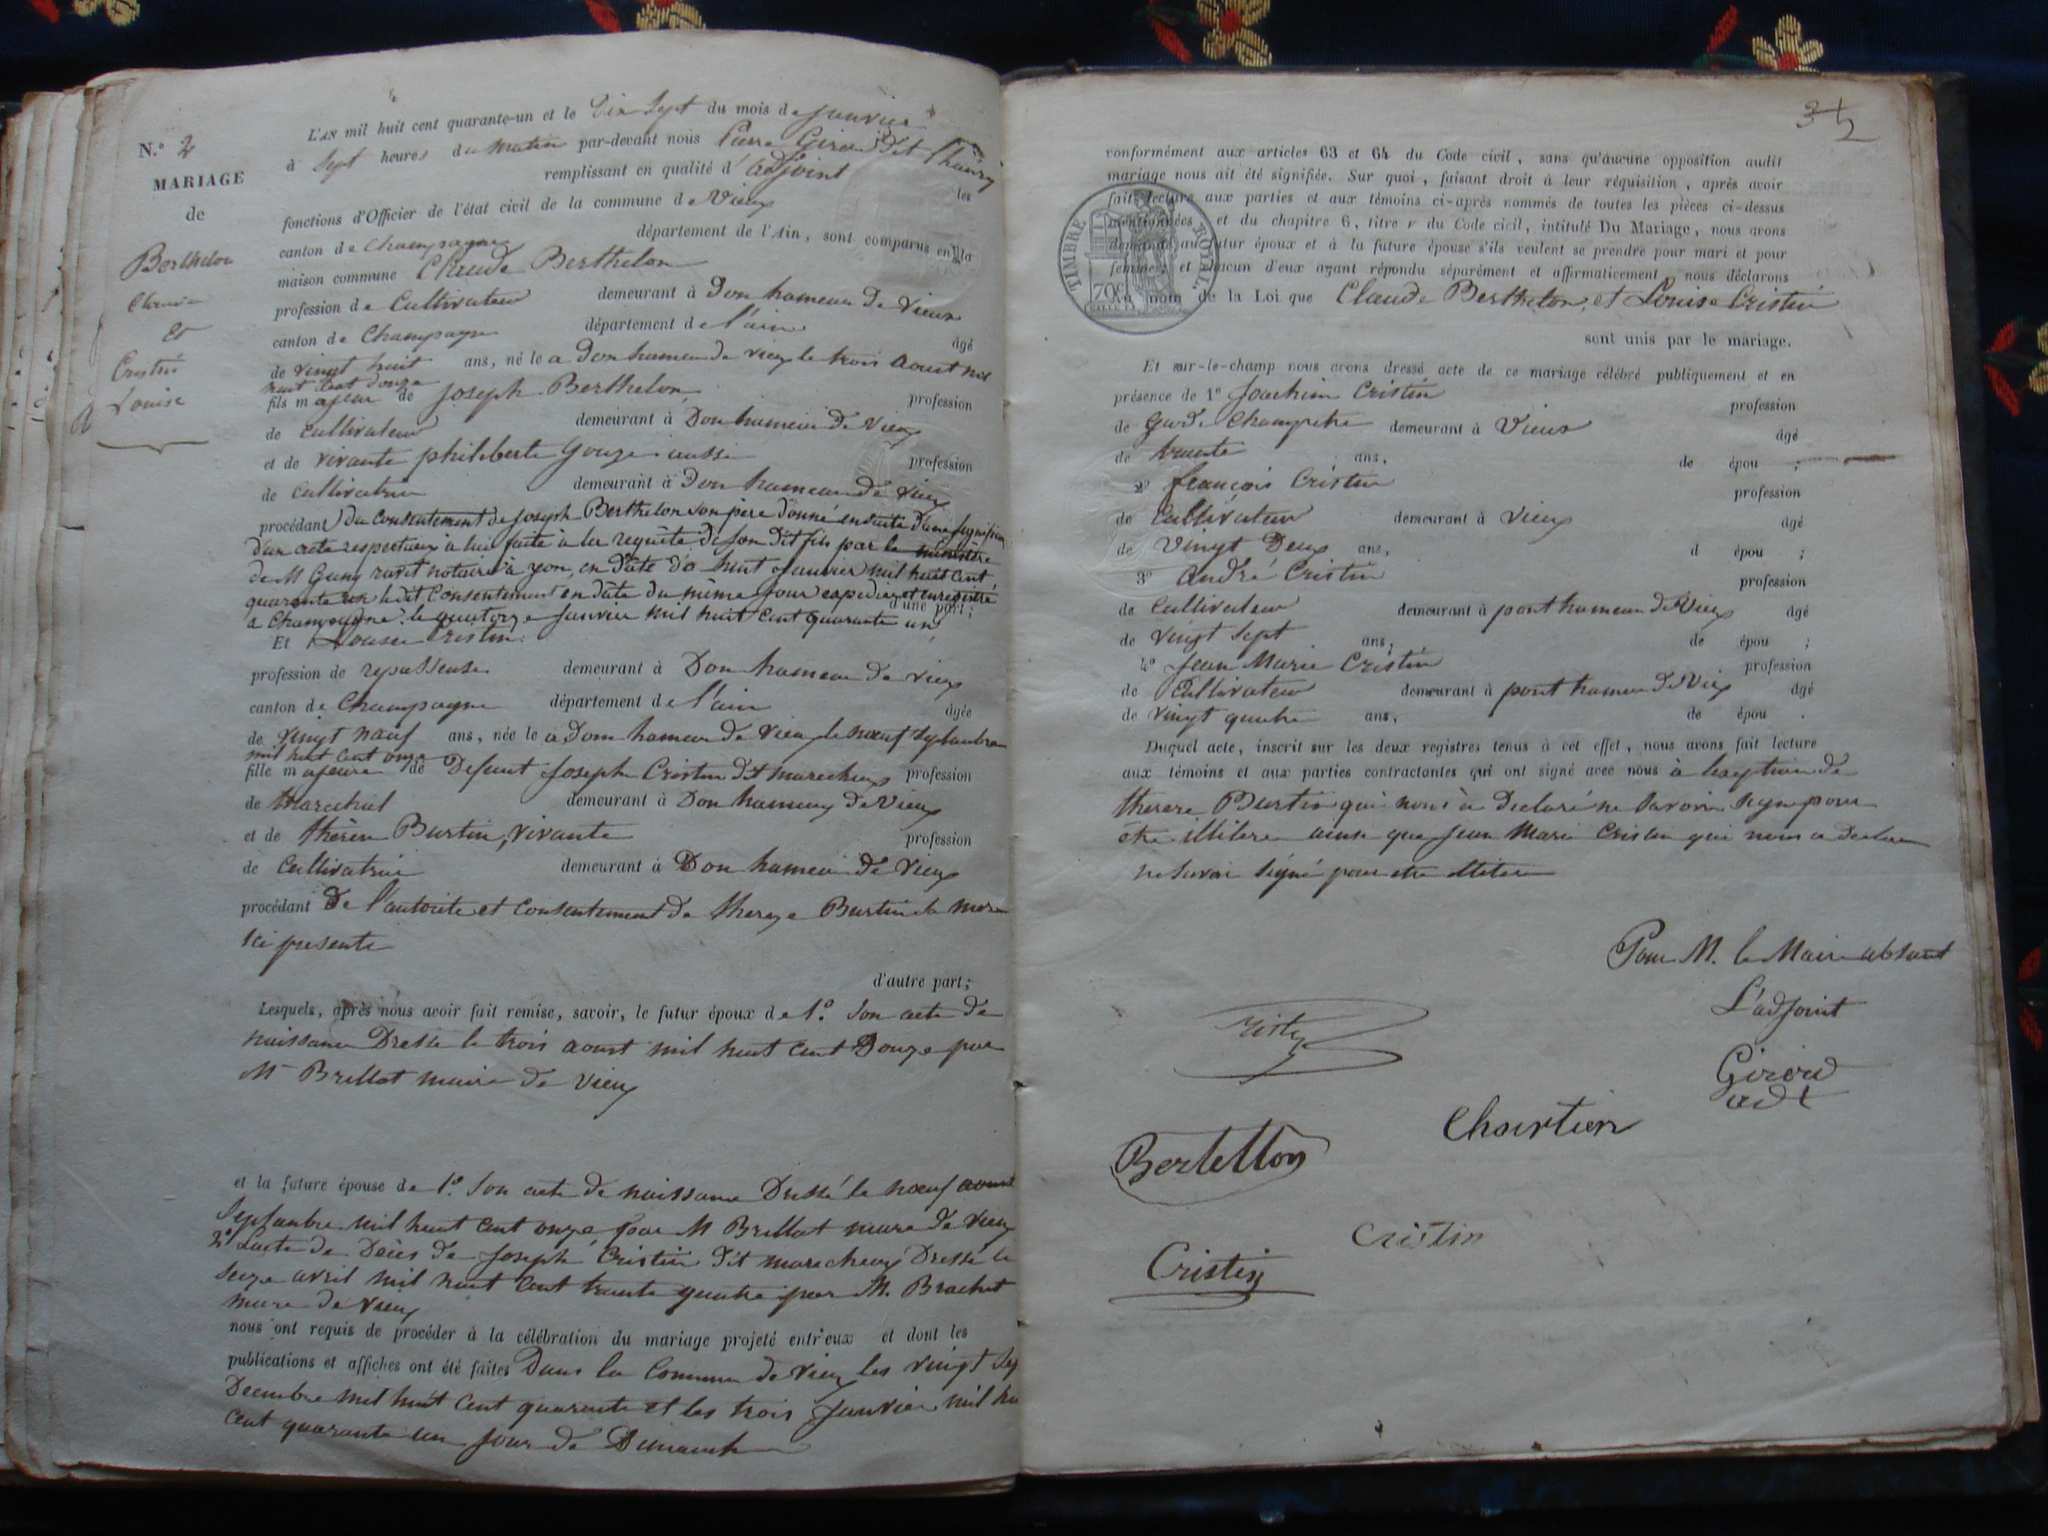 N.° 2
MARIAGE
de
Berthelon
Claude
et
Cristin
Louise
L'AN mil huit cent quarante-un et le Dix Sept du mois de Janvier
à Sept heures du matin par-devant nous Pierre Girod dit
remplissant en qualité d'adjoint les
fonctions d'Officier de l'état civil de la commune de Vieux
canton de Champagne département de l'Ain, sont comparus en la
maison commune Claude Berthelon
profession de Cultivateur demeurant à Don hameau de Vieux
canton de Champagne département de l'ain âgé
de vingt huit ans, né le a Don hameau de vieux le trois aoust mil
huit cent douze
fils majeur de Joseph Berthelon profession
de cultivateur demeurant à Don hameau de Vieux
et de vivante philiberte Gouze aussi profession
de Cultivatrice demeurant à Don hameau de vieux
procédant du consentement de Joseph Berthelon son père donné ensuite d'une signification
d'un acte respectueux à lui faite à la requête de son dit fils par le ministère
de M Guny notaire à yon, en date du huit Janvier mil huit cent
quarante un ledit Consentement en date du même jour expedié et enregistré
a Champagne le quatorze Janvier mil huit cent quarante un d'une part;
Et Louise Cristin
profession de repasseuse demeurant à Don hameau de vieux
canton de Champagne département de l'ain âgée
de vingt nœuf ans, née le a Don hameau de vieux le nœuf Septembre
mil huit cent onze
fille majeure de Defunt Joseph Cristin dit marechaux profession
de Marechal demeurant à Don hameau de Vieux
et de thérèse Burtin, vivante profession
de Cultivatrice demeurant à Don hameau de Vieux
procédant De l'autorité et consentement de thereze Burtin sa mere
ici presente
d'autre part;
Lesquels, après nous avoir fait remise, savoir, le futur époux de 1.° Son acte de
naissance Dressé le trois aoust mil huit cent Douze par
Mr Brillat maire de Vieux
et la future épouse de 1.° Son acte de naissance Dressé le nœuf aoust
Septembre mil huit cent onze par M Brillat maire de vieux
2.° L'acte de Décès de Joseph Cristin dit marechaux Dressé le
seize avril mil huit cent trente quatre par M. Brachet
maire de vieux
nous ont requis de procéder à la célébration du mariage projeté entr'eux et dont les
publications et affiches ont été faites Dans la Commune de vieux les vingt Sep
Decembre mil huit cent quarante et les trois Janvier mil hu
cent quarante un Jour de Dimanche
3
2
conformément aux articles 63 et 64 du Code civil, sans qu'aucune opposition audit
mariage nous ait été signifiée. Sur quoi, faisant droit à leur réquisition, après avoir
fait lecture aux parties et aux témoins ci-après nommés de toutes les pièces ci-dessus
mentionnées, et du chapitre 6, titre v du Code civil, intitulé Du Mariage, nous avons
demandé au futur époux et à la future épouse s'ils veulent se prendre pour mari et pour
femme; et chacun d'eux ayant répondu séparément et affirmativement, nous déclarons
au nom de la Loi que Claude Berthelon, et Louise Cristin
TIMBRE ROYAL
70c
sont unis par le mariage.
Et sur-le-champ nous avons dressé acte de ce mariage célébré publiquement et en
présence de 1° Joachim Cristin profession
de Garde Champetre demeurant à Vieux âgé
de trente ans, de épou ;
2° francois Cristin profession
de Cultivateur demeurant à vieux âgé
de vingt Deux ans, d épou ;
3° André Cristin profession
de Cultivateur demeurant à pont hameau de Vieux âgé
de vingt Sept ans, de épou ;
4° Jean Marie Cristin profession
de Cultivateur demeurant à pont hameau de Vieux âgé
de vingt quatre ans, de épou .
Duquel acte, inscrit sur les deux registres tenus à cet effet, nous avons fait lecture
aux témoins et aux parties contractantes qui ont signé avec nous à l'exeption de
therese Burtin qui nous à Declaré ne Savoir Signe pour
etre illitere ainsi que Jean Marie Cristin qui nous a declare
ne Savoir Signé pour etre illitere
Pour M. le Maire absent
L'adjoint
Girod
adt
Chairtien
Bertellon
Cristin
Cristin